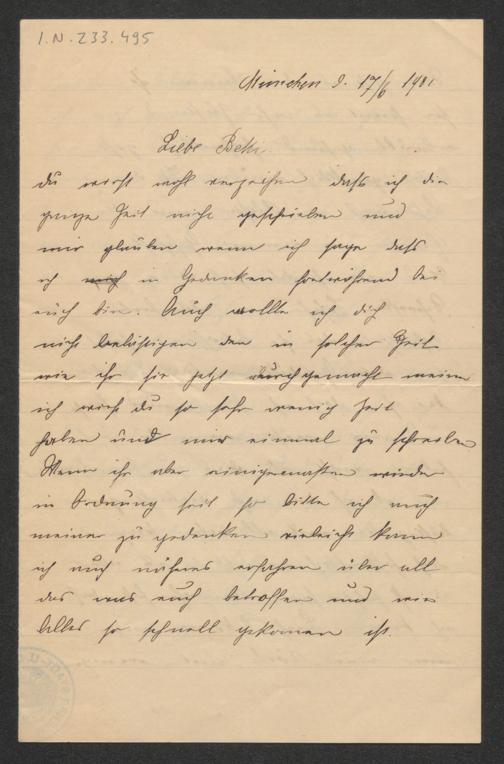 I.N. 233.495
München d. 17/6 1901
Liebe Beki
du wirst wohl verzeihen daſs ich die
ganze Zeit nicht geschrieben und
mir glauben wenn ich sage daſs
ich in Gedanken fortwährend bei
euch bin. Auch wollte ich dich
nicht belästigen den in solcher Zeit
wie ihr sie jetzt durchgemacht meine
ich wirst du so sehr wenig Zeit
haben und mir einmal zu schreiben
Wenn ihr aber einigermaſsen wieder
in Ordnung seit so bitte ich auch
meiner zu gedenken vieleicht kann
ich auch näheres erfahren über all
das was euch betroffen und wie
Alles so schnell gekomen ist.